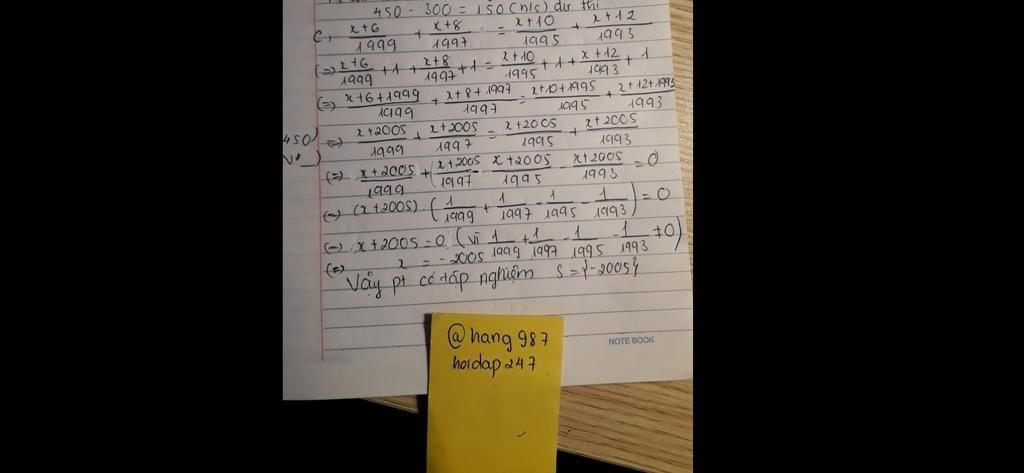 450 - 300 = 150 (h/s) dự thi
c, x+6/1999 + x+8/1997 = x+10/1995 + x+12/1993
(=) x+6/1999 + 1 + x+8/1997 + 1 = x+10/1995 + 1 + x+12/1993 + 1
(=) x+6+1999/1999 + x+8+1997/1997 = x+10+1995/1995 + x+12+1993/1993
450)
(=) x+2005/1999 + x+2005/1997 = x+2005/1995 + x+2005/1993
(=) x+2005/1999 + (x+2005/1997 - x+2005/1995 - x+2005/1993 = 0
(=) (x+2005) (1/1999 + 1/1997 - 1/1995 - 1/1993) = 0
(=) x+2005 = 0 (vì 1/1999 + 1/1997 - 1/1995 - 1/1993 ≠ 0)
(=) x = -2005
Vậy pt có tập nghiệm S = {-2005}
NOTE BOOK
@hang987
hoidap247